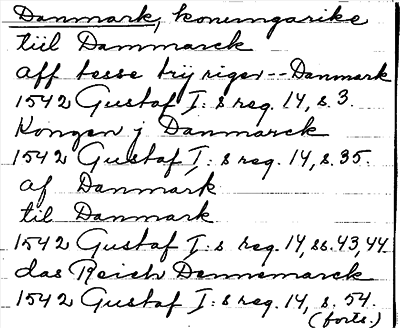 Danmark, konungarike
tiil Dammarck
aff tesse trij riger -- Danmark
1542 Gustaf I: s reg. 14, s. 3.
Kongen j Danmarck
1542 Gustaf I: s reg. 14, s. 35.
af Danmark
til Danmark
1542 Gustaf I: s reg. 14, ss. 43, 44.
das Reich Dennemarck
1542 Gustaf I: s reg. 14, s. 54.
(forts.)